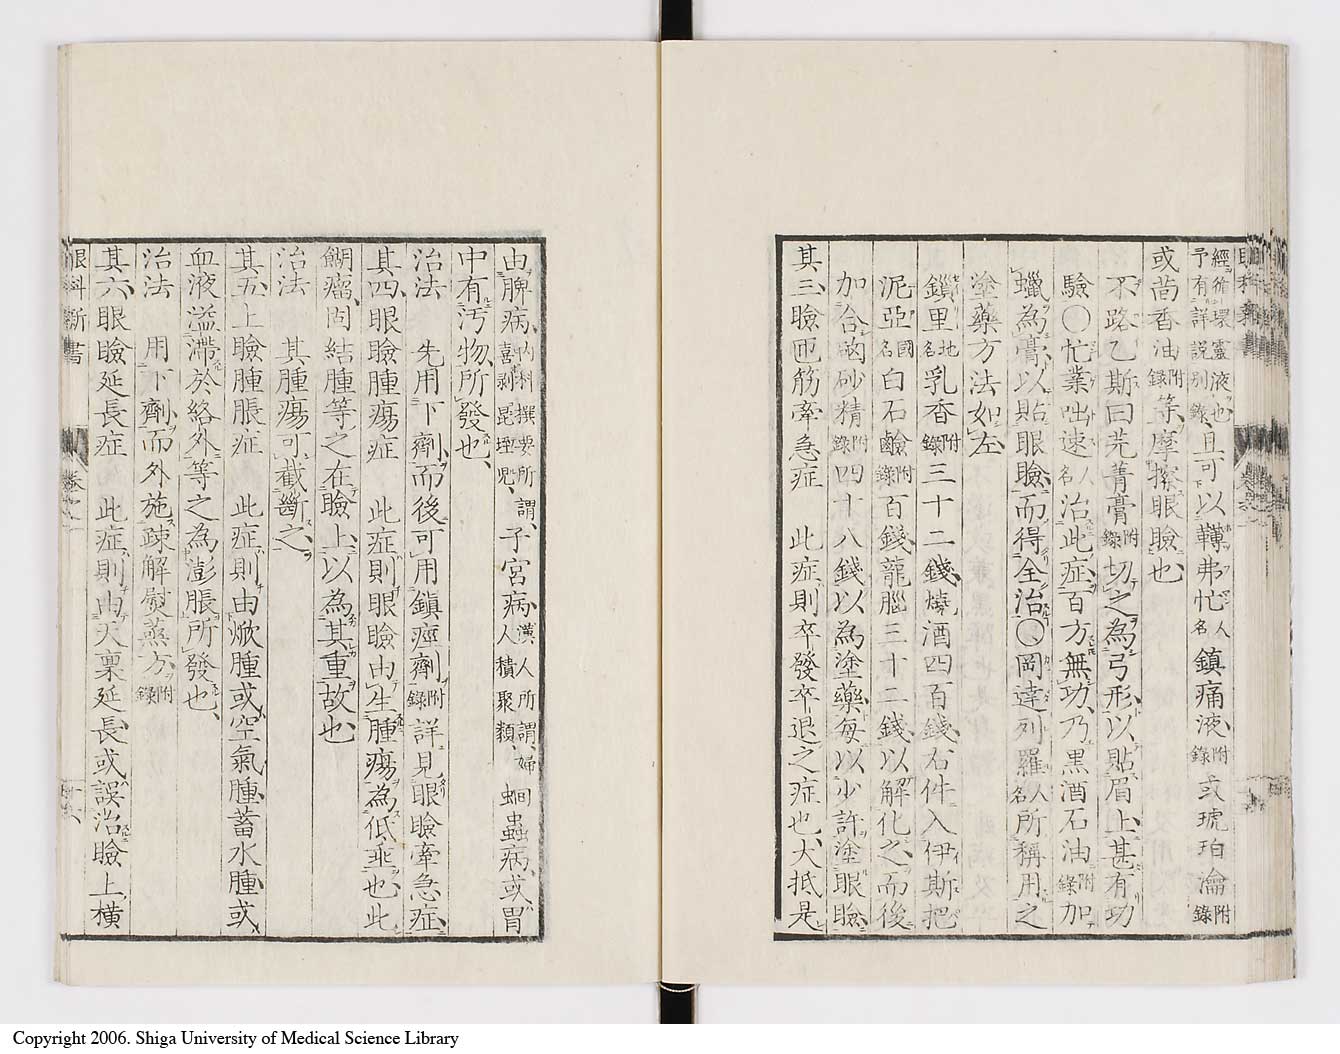 經循環靈液也
予有詳說別錄且可以鞸弗忙人名鎮痛液附錄或琥珀瀹附錄
或茴香油附錄等摩擦眼瞼也
不路乙斯曰芫菁膏附錄切之為弓形以貼眉上甚有功
驗〇忙業咄速人名治此症百方無功乃黑酒石油附錄加
蠟為膏以貼眼瞼而得全治〇岡達列羅人名所稱用之
塗藥方法如左
鎖里地名乳香附錄三十二錢燒酒四百錢右件入伊斯把
泥亞國名白石鹼附錄百錢龍腦三十二錢以解化之而後
加合磠砂精附錄四十八錢以為塗藥每以少許塗眼瞼
其三瞼匝筋牽急症 此症則卒發卒退之症也大抵是
由脾病內科撰要所謂喜剥昆垤兒子宮病漢人所謂婦人積聚類蛔蟲病或胃
中有汚物所發也
治法 先用下劑而後可用鎮痙劑附錄詳見眼瞼牽急症
其四眼瞼腫瘍症 此症則眼瞼由生腫瘍為低垂也此
餬瘤固結腫等之在瞼上以為其重故也
治法 其腫瘍可截斷之
其五上瞼腫脹症 此症則由焮腫或空氣腫蓄水腫或
血液溢滯於絡外等之為澎脹所發也
治法 用下劑而外施疎解熨蒸方附錄
其六眼瞼延長症 此症則由天稟延長或誤治瞼上橫
眼科新書 卷之
Copyright 2006. Shiga University of Medical Science Library